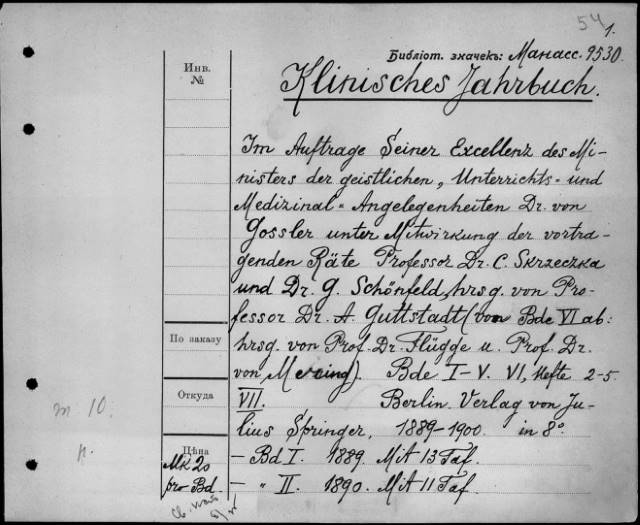 54 1.
Библіот. значекъ: Манасс. 9530.
Инв.
№
Klinisches Jahrbuch.
Im Auftrage Seiner Excellenz des Mi-
nisters der geistlichen, Unterrichts- und
Medizinal-Angelegenheiten Dr. von
Gossler unter Mitwirkung der vortra-
genden Räte Professor Dr. C. Skrzeczka
und Dr. G. Schönfeld, hrsg. von Pro-
fessor Dr. A. Guttstadt (von Bde VI ab:
По заказу
hrsg. von Prof. Dr. Flügge u. Prof. Dr.
von Mering). Bde I-V. VI, Hefte 2-5.
Откуда
VII. Berlin. Verlag von Ju-
m 10.
lius Springer. 1889-1900. in 8°.
Цѣна
Mk 20
pro Bd.
- Bd I. 1889. Mit 13 Taf.
- " II. 1890. Mit 11 Taf.